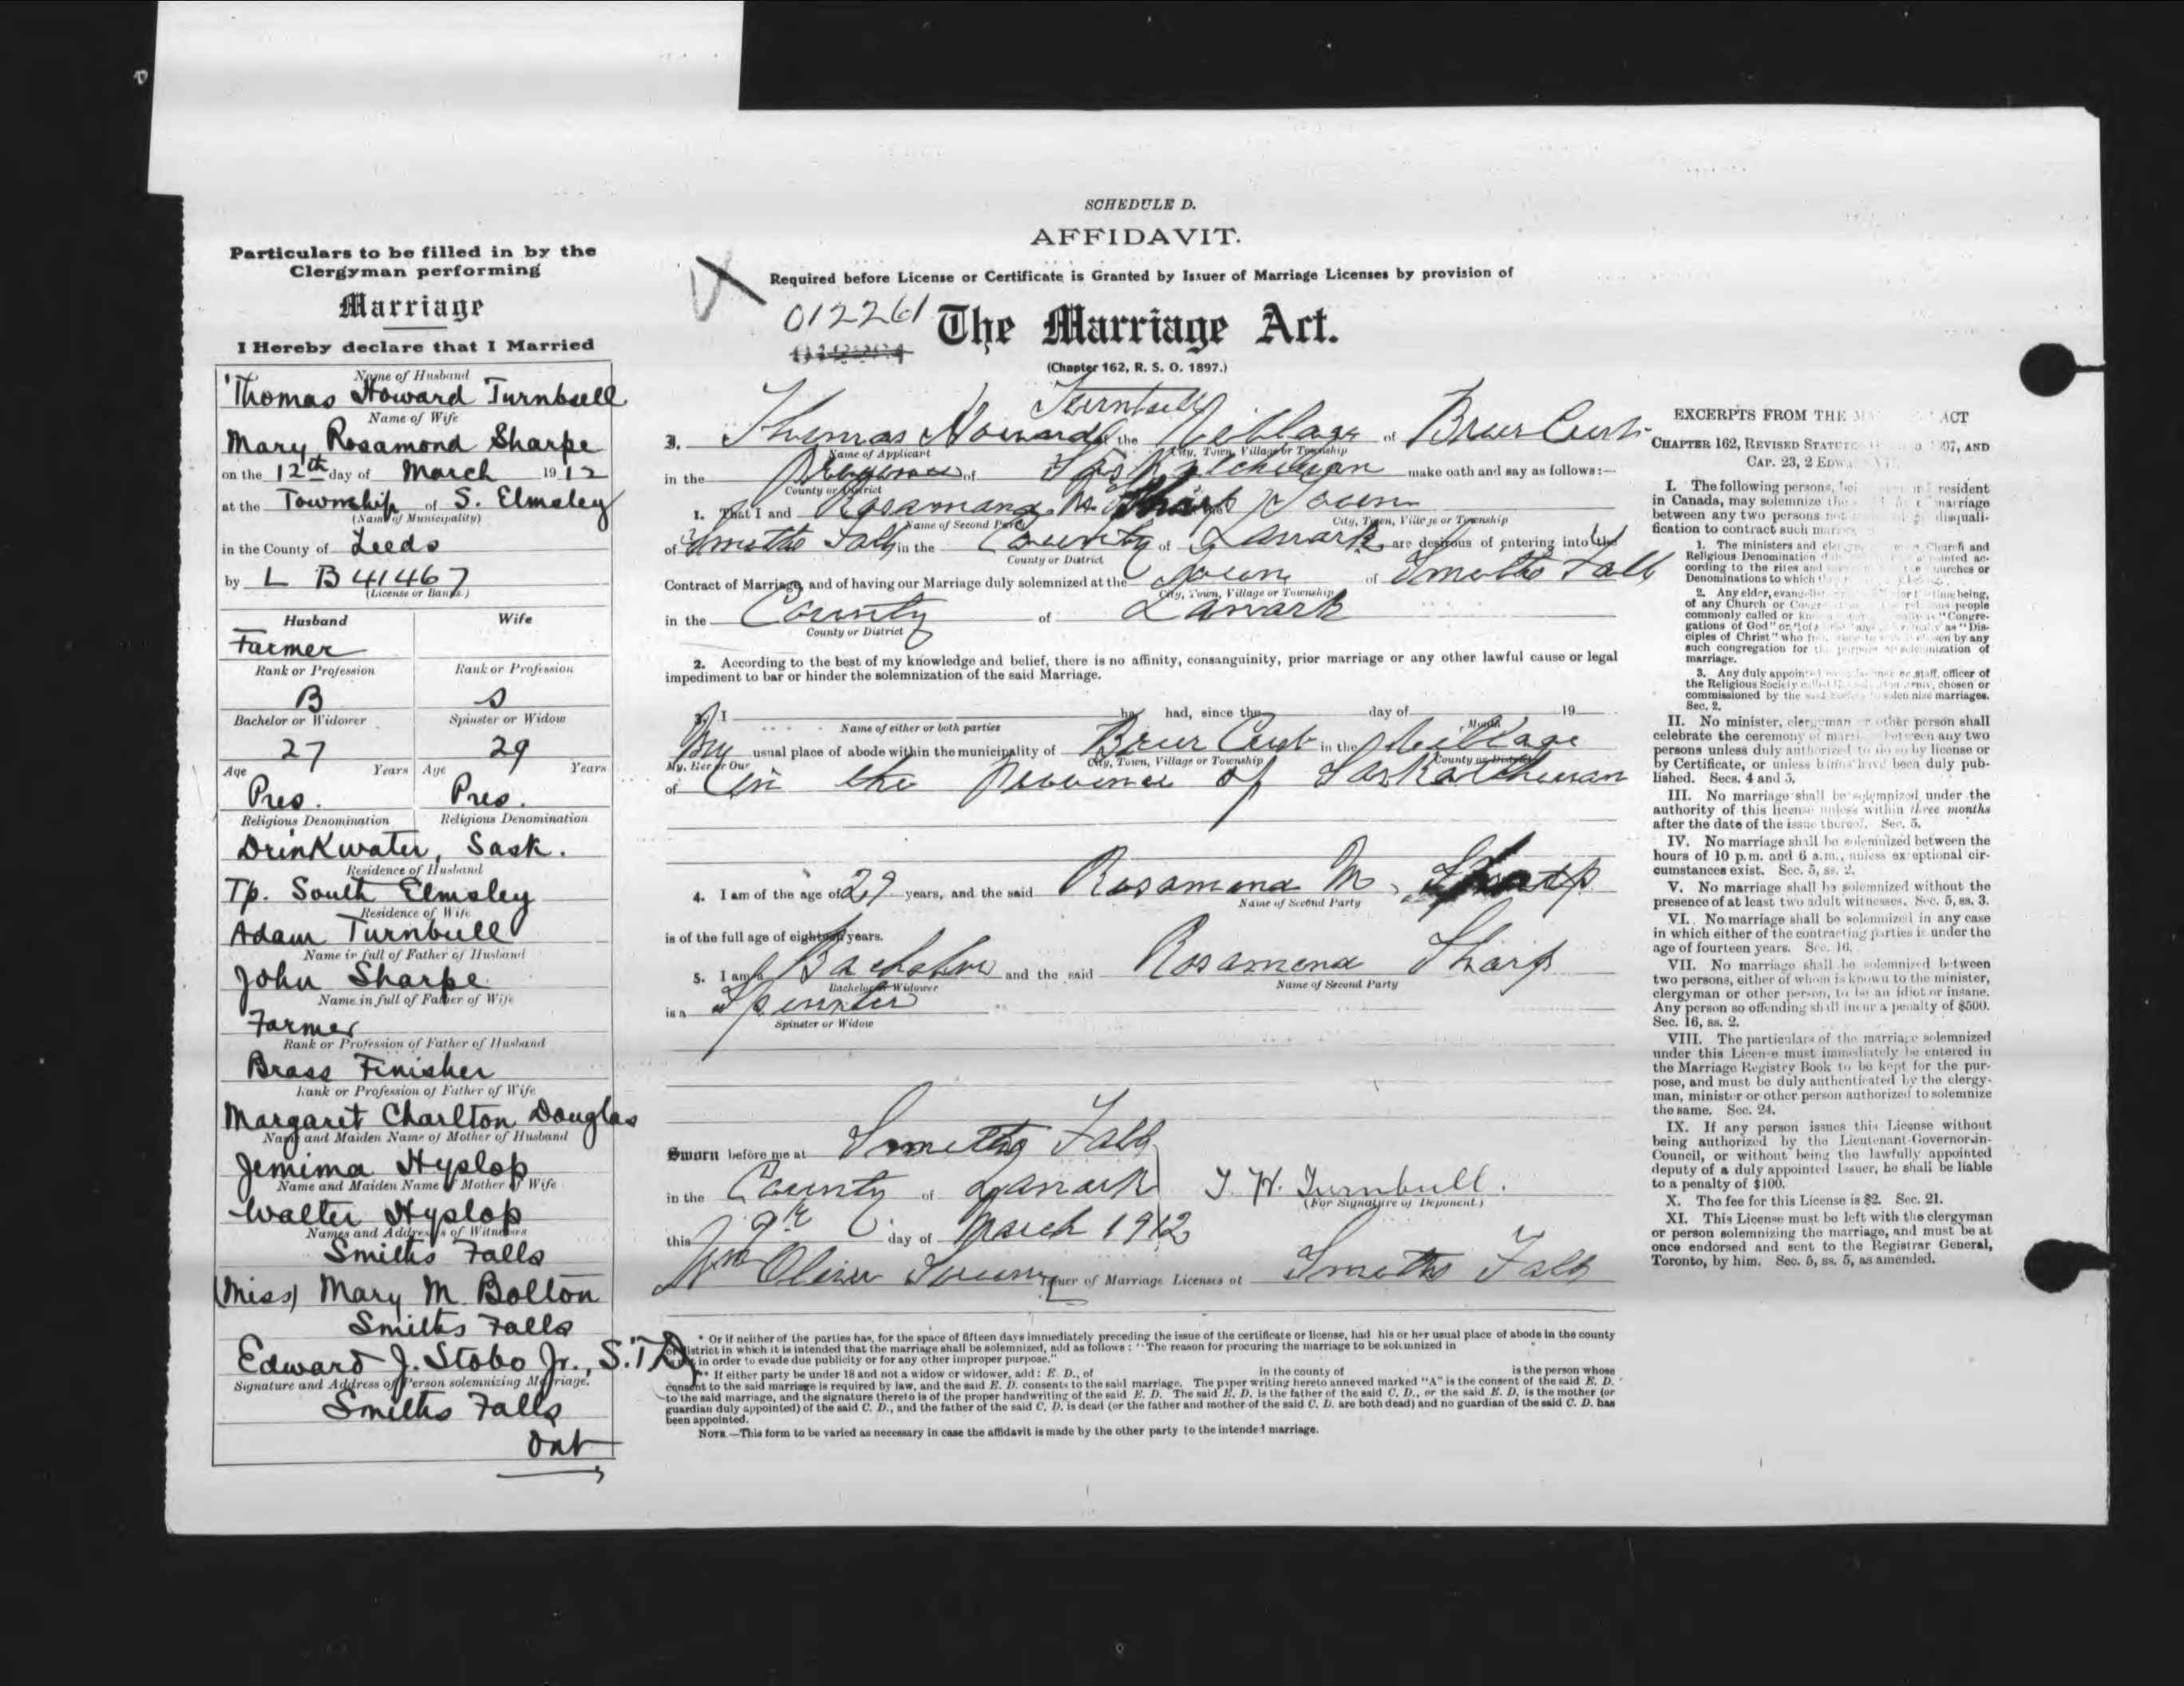 Particulars to be filled in by the
Clergyman performing
Marriage
I Hereby declare that I Married
Name of Husband
Thomas Howard Turnbull
Name of Wife
Mary Rosamond Sharpe
on the 12th day of March 1912
at the Township of S. Elmsley
(Name of Municipality)
in the County of Leeds
by L B 41467
(License or Banns.)
Husband Wife
Farmer
Rank or Profession Rank or Profession
B S
Bachelor or Widower Spinster or Widow
27 29
Age Years Age Years
Pres. Pres.
Religious Denomination Religious Denomination
Drinkwater, Sask.
Residence of Husband
Tp. South Elmsley
Residence of Wife
Adam Turnbull
Name in full of Father of Husband
John Sharpe
Name in full of Father of Wife
Farmer
Rank or Profession of Father of Husband
Brass Finisher
Rank or Profession of Father of Wife
Margaret Charlton Douglas
Name and Maiden Name of Mother of Husband
Jemima Hyslop
Name and Maiden Name of Mother of Wife
Walter Hyslop
Names and Addresses of Witnesses
Smiths Falls
(Miss) Mary M. Bolton
Smiths Falls
Edward J. Stobo Jr., S.T.D.
Signature and Address of Person solemnizing Marriage.
Smiths Falls
Ont
SCHEDULE D.
AFFIDAVIT.
Required before License or Certificate is Granted by Issuer of Marriage Licenses by provision of
012261
The Marriage Act.
(Chapter 162, R. S. O. 1897.)
Turnbull
Thomas Howard of the Village of Brier Crest
Name of Applicant City, Town, Village or Township
in the Province of Saskatchewan make oath and say as follows:—
County or District
1. That I and Rosamond M. Sharp Town
Name of Second Party City, Town, Village or Township
of Smiths Falls in the County of Lanark are desirous of entering into the
County or District
Contract of Marriage, and of having our Marriage duly solemnized at the Town of Smiths Falls
City, Town, Village or Township
in the County of Lanark
County or District
2. According to the best of my knowledge and belief, there is no affinity, consanguinity, prior marriage or any other lawful cause or legal
impediment to bar or hinder the solemnization of the said Marriage.
3. I ha had, since the day of 19
Name of either or both parties Month
My usual place of abode within the municipality of Brier Crest in the Village
My, Her or Our City, Town, Village or Township County or District
of in the province of Saskatchewan
4. I am of the age of 27 years, and the said Rosamond M. Sharp
Name of Second Party
is of the full age of eighteen years.
5. I am a Bachelor and the said Rosamond Sharp
Bachelor or Widower Name of Second Party
is a Spinster
Spinster or Widow
Sworn before me at Smiths Falls
in the County of Lanark T. H. Turnbull.
(For Signature of Deponent.)
this 9th day of March 1912
Wm Oliver Issuer of Marriage Licenses at Smiths Falls
* Or if neither of the parties has, for the space of fifteen days immediately preceding the issue of the certificate or license, had his or her usual place of abode in the county
or district in which it is intended that the marriage shall be solemnized, add as follows: "The reason for procuring the marriage to be solemnized in
in order to evade due publicity or for any other improper purpose."
** If either party be under 18 and not a widow or widower, add: E. D., of in the county of is the person whose
consent to the said marriage is required by law, and the said E. D. consents to the said marriage. The paper writing hereto annexed marked "A" is the consent of the said E. D.
to the said marriage, and the signature thereto is of the proper handwriting of the said E. D. The said E. D. is the father of the said C. D., or the said E. D. is the mother (or
guardian duly appointed) of the said C. D., and the father of the said C. D. is dead (or the father and mother of the said C. D. are both dead) and no guardian of the said C. D. has
been appointed.
NOTE.—This form to be varied as necessary in case the affidavit is made by the other party to the intended marriage.
EXCERPTS FROM THE ACT
CHAPTER 162, REVISED STATUTES 1897, AND
CAP. 23, 2 EDW. VII.
I. The following persons, being resident
in Canada, may solemnize the marriage
between any two persons not disquali-
fication to contract such marriage
1. The ministers and clergy Church and
Religious Denomination ac-
cording to the rites and Churches or
Denominations to which
2. Any elder, evangelist for time being,
of any Church or people
commonly called or "Congre-
gations of God" or as "Dis-
ciples of Christ" who chosen by any
such congregation for the purpose of solemnization of
marriage.
3. Any duly appointed or staff officer of
the Religious Society chosen or
commissioned by the said Society to solemnize marriages.
Sec. 2.
II. No minister, clergyman or other person shall
celebrate the ceremony of marriage between any two
persons unless duly authorized to do so by license or
by Certificate, or unless banns have been duly pub-
lished. Secs. 4 and 5.
III. No marriage shall be solemnized under the
authority of this license unless within three months
after the date of the issue thereof. Sec. 5.
IV. No marriage shall be solemnized between the
hours of 10 p.m. and 6 a.m., unless exceptional cir-
cumstances exist. Sec. 5, ss. 2.
V. No marriage shall be solemnized without the
presence of at least two adult witnesses. Sec. 5, ss. 3.
VI. No marriage shall be solemnized in any case
in which either of the contracting parties is under the
age of fourteen years. Sec. 16.
VII. No marriage shall be solemnized between
two persons, either of whom is known to the minister,
clergyman or other person, to be an idiot or insane.
Any person so offending shall incur a penalty of $500.
Sec. 16, ss. 2.
VIII. The particulars of the marriage solemnized
under this License must immediately be entered in
the Marriage Registry Book to be kept for the pur-
pose, and must be duly authenticated by the clergy-
man, minister or other person authorized to solemnize
the same. Sec. 24.
IX. If any person issues this License without
being authorized by the Lieutenant-Governor-in-
Council, or without being the lawfully appointed
deputy of a duly appointed Issuer, he shall be liable
to a penalty of $100.
X. The fee for this License is $2. Sec. 21.
XI. This License must be left with the clergyman
or person solemnizing the marriage, and must be at
once endorsed and sent to the Registrar General,
Toronto, by him. Sec. 5, ss. 5, as amended.